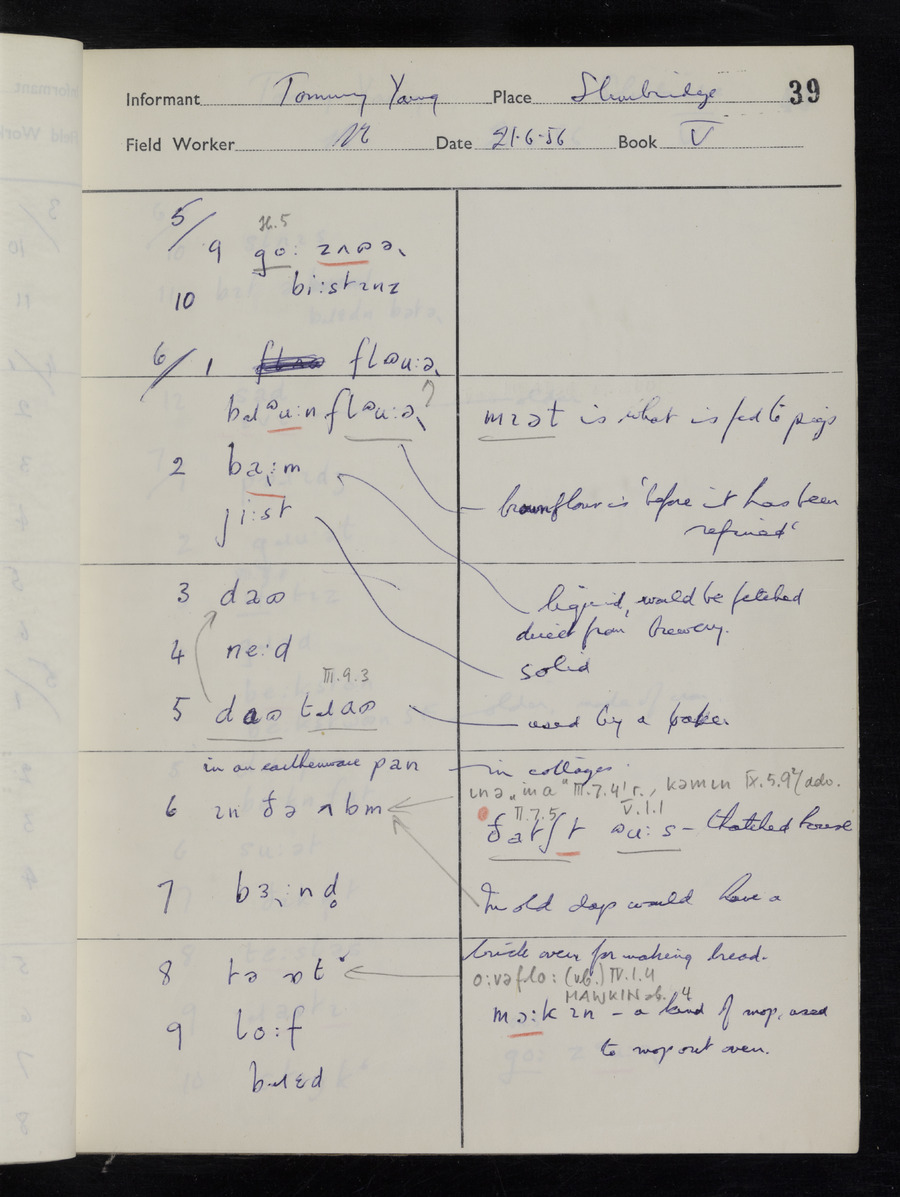 Informant Tommy Young Place Sturbridge 39
Field Worker Date 21-6-56 Book V
5/ H.5
9 go:
10 bi:stɪnz
6/ 1 flɒu:ə
flɒu:ə mɪət is what is fed to pigs
2 ba:m
brownflour is 'before it has been
ji:st refined'
3 liquid, would be fetched
direct from brewery.
4 ne:d
III.9.3 solid
5 used by a baker
in an earthenware pan in cottages
III.7.4 r., kəmɪn IX.5.9 addo.
6 ɪn ðə ʌbm II.7.5 V.1.1
ðatʃt ɒu:s – thatched house
7 bɜ:nd In old days would have a
brick oven for making bread.
8 o:vəflo: (vb.) IV.1.4
MAWKIN sb. 4
9 lo:f mɔ:kɪn – a kind of mop, used
to mop out oven.
bɹɛd